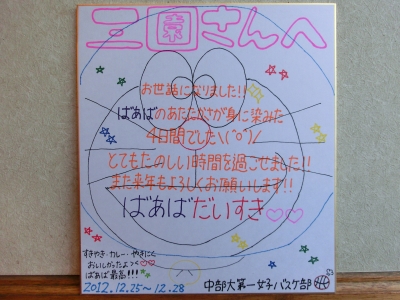 三園さんへ
お世話になりました!!
ばぁばのあたたかさが身に染みた
4日間でした\(^o^)/
とてもたのしい時間を過ごせました!!
また来年もよろしくお願いします!!
ばぁばだいすき♡♡
すきやき・カレー・やきにく
おいしかったよっ♡♡
ばぁば最高!!!
2012.12.25〜12.28
中部大第一女子バスケ部